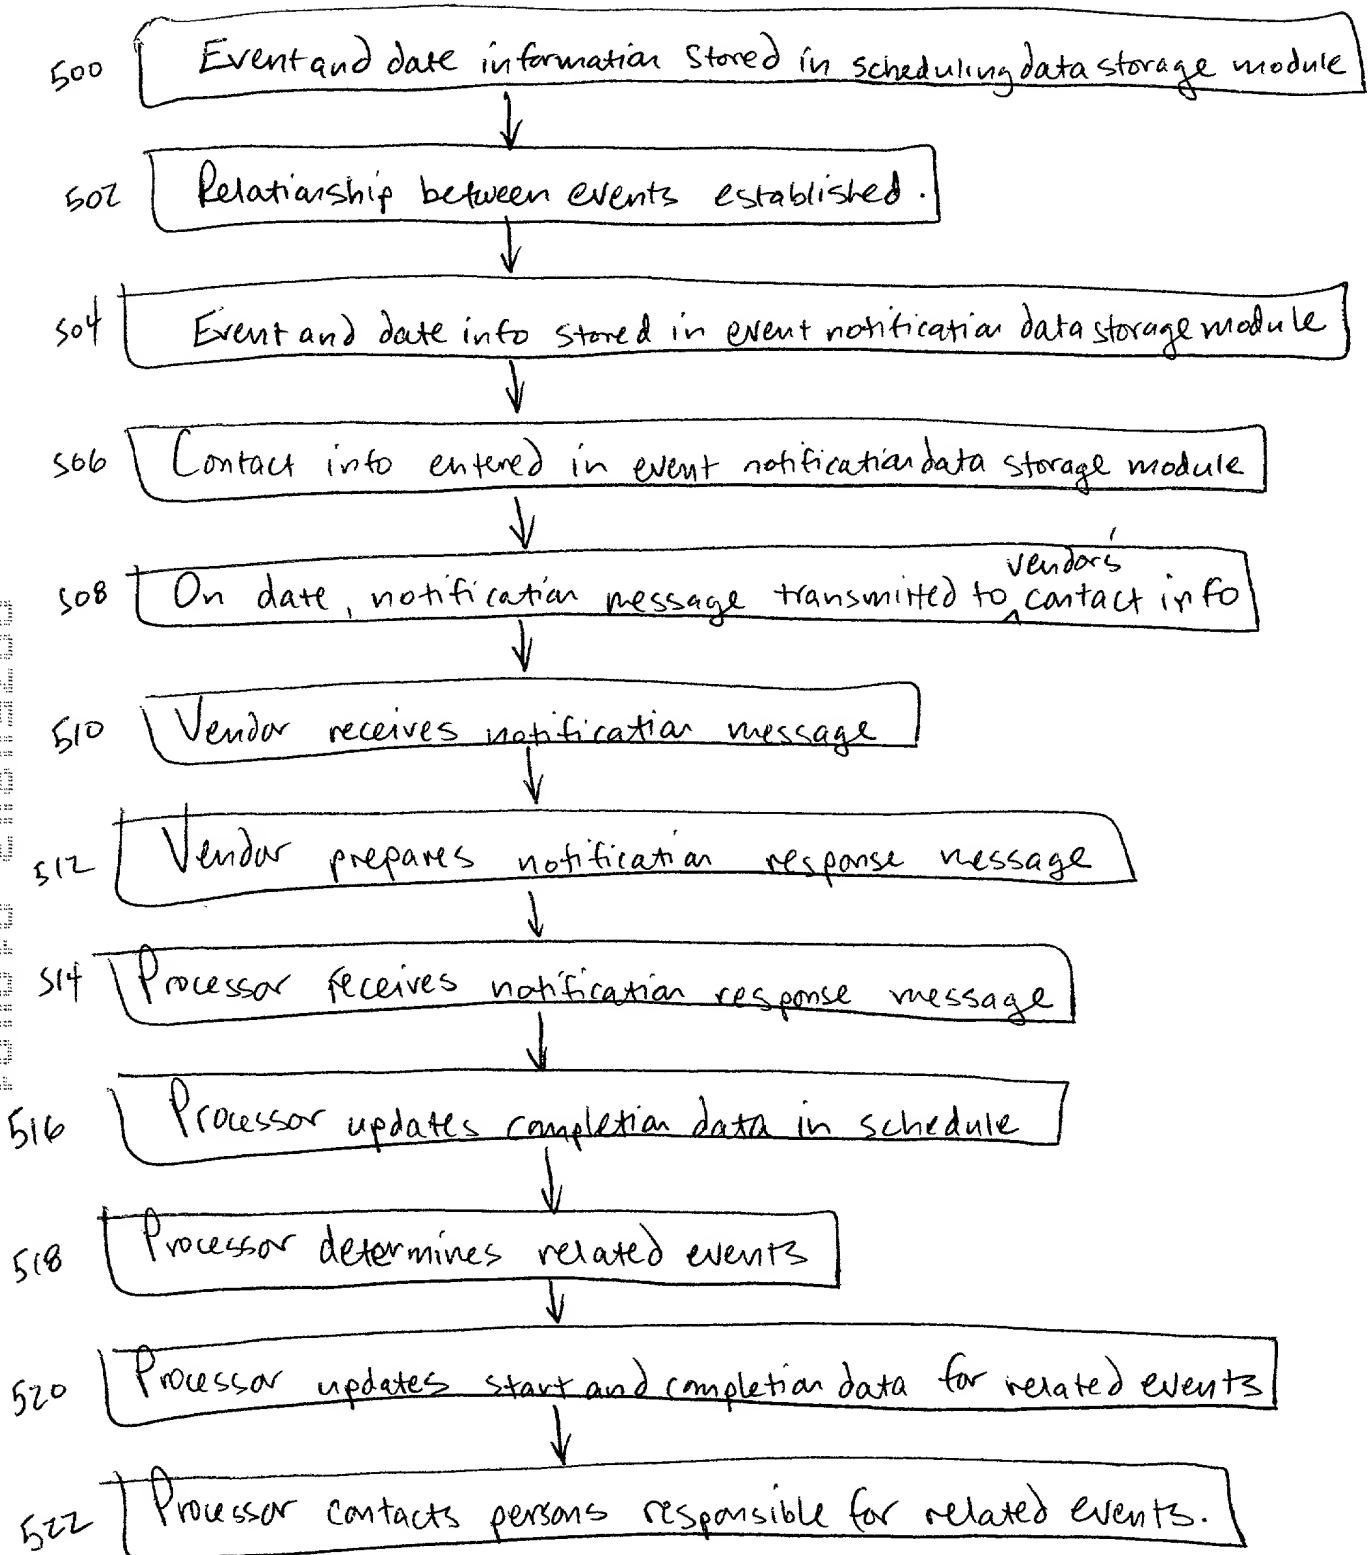 500 Event and date information stored in scheduling data storage module
502 Relationship between events established.
504 Event and date info stored in event notification data storage module
506 Contact info entered in event notification data storage module
508 On date, notification message transmitted to vendor's contact info
510 Vendor receives notification message
512 Vendor prepares notification response message
514 Processor receives notification response message
516 Processor updates completion data in schedule
518 Processor determines related events
520 Processor updates start and completion data for related events
522 Processor contacts persons responsible for related events.